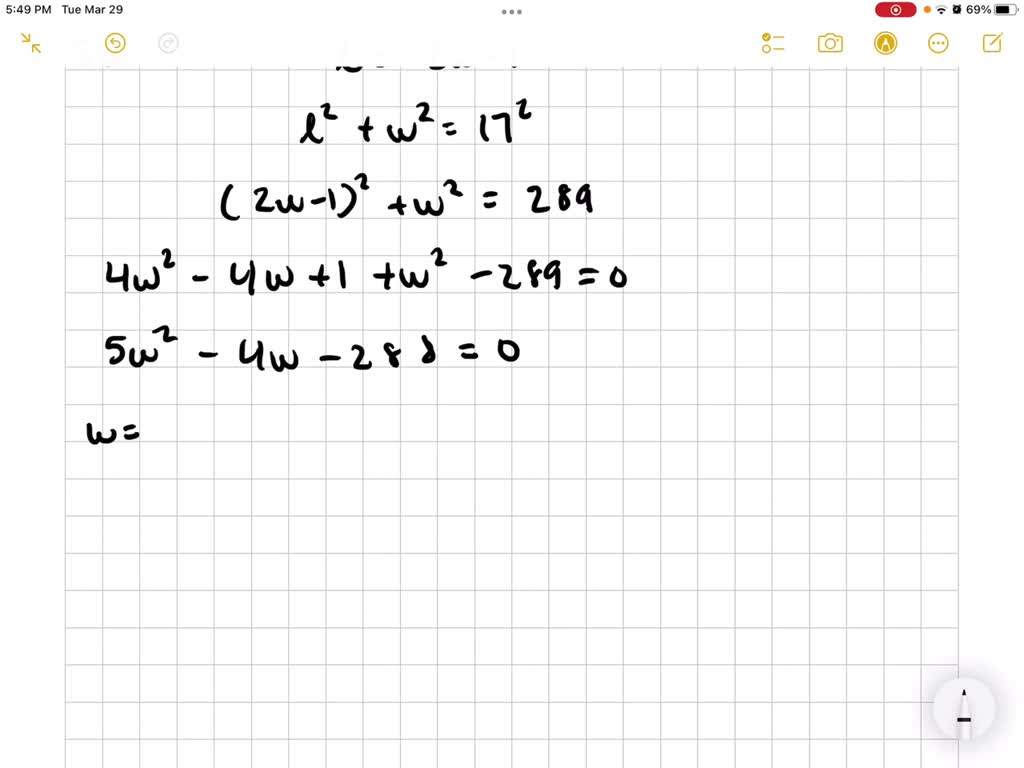 5:49 PM Tue Mar 29
69%
l² + w² = 17²
(2w-1)² + w² = 289
4w² - 4w + 1 + w² - 289 = 0
5w² - 4w - 288 = 0
w =